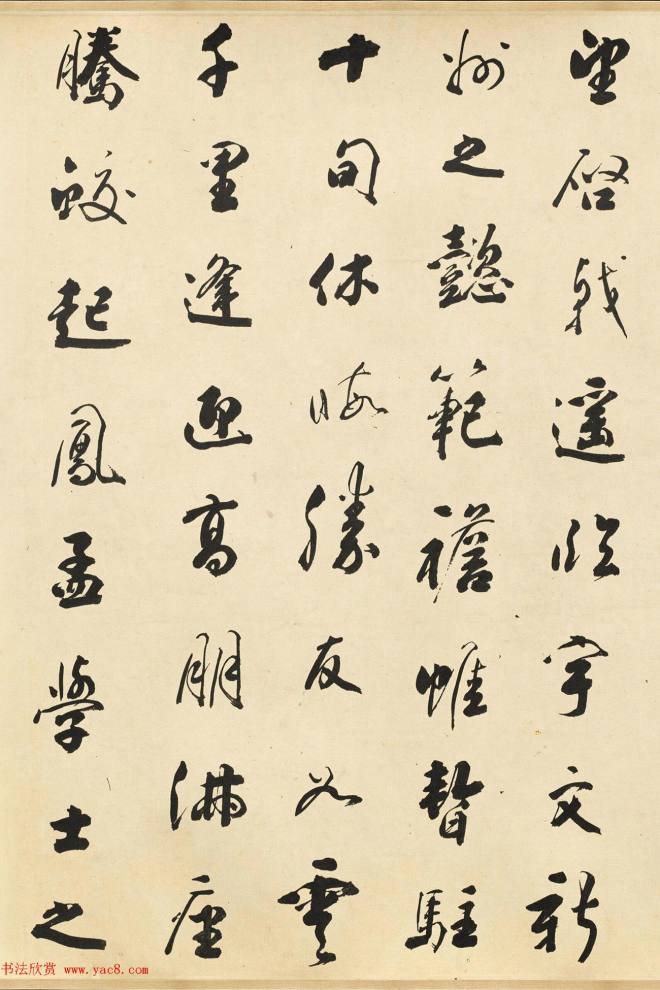 望启戟遥临宇文新
州之懿範襜帷暫駐
十旬休暇勝友如雲
千里逢迎高朋滿座
騰蛟起鳳孟學士之
书法欣赏 www.yac8.com